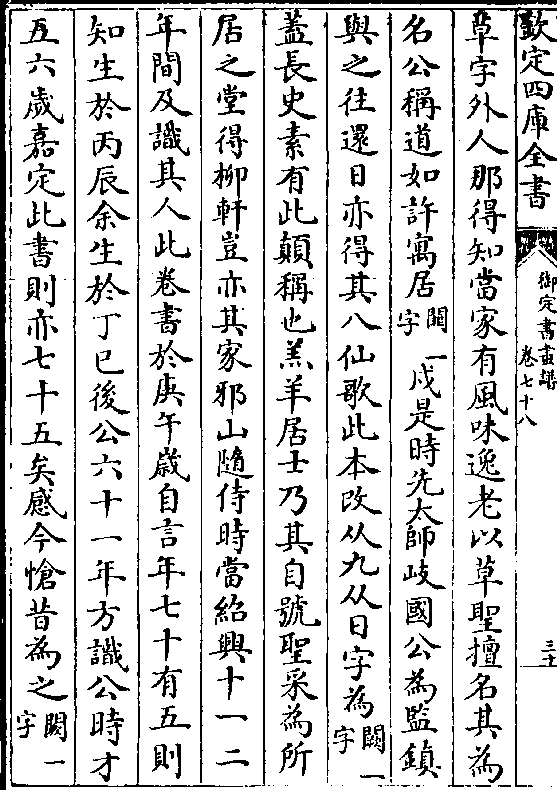 欽定四庫全書
御定書畫譜
卷七十八
三士
草字外人那得知當家有風味逸老以草聖擅名其為
名公稱道如許寓居闕一字戍是時先太師岐國公為監鎮
與之往還日亦得其八仙歌此本改从九从日字為闕一字
蓋長史素有此顛稱也羔羊居士乃其自號聖采為所
居之堂得柳軒豈亦其家邪山隨侍時當紹興十一二
年間及識其人此卷書於庚午歲自言年七十有五則
知生於丙辰余生於丁巳後公六十一年方識公時才
五六歲嘉定此書則亦七十五矣感今愴昔為之闕一字